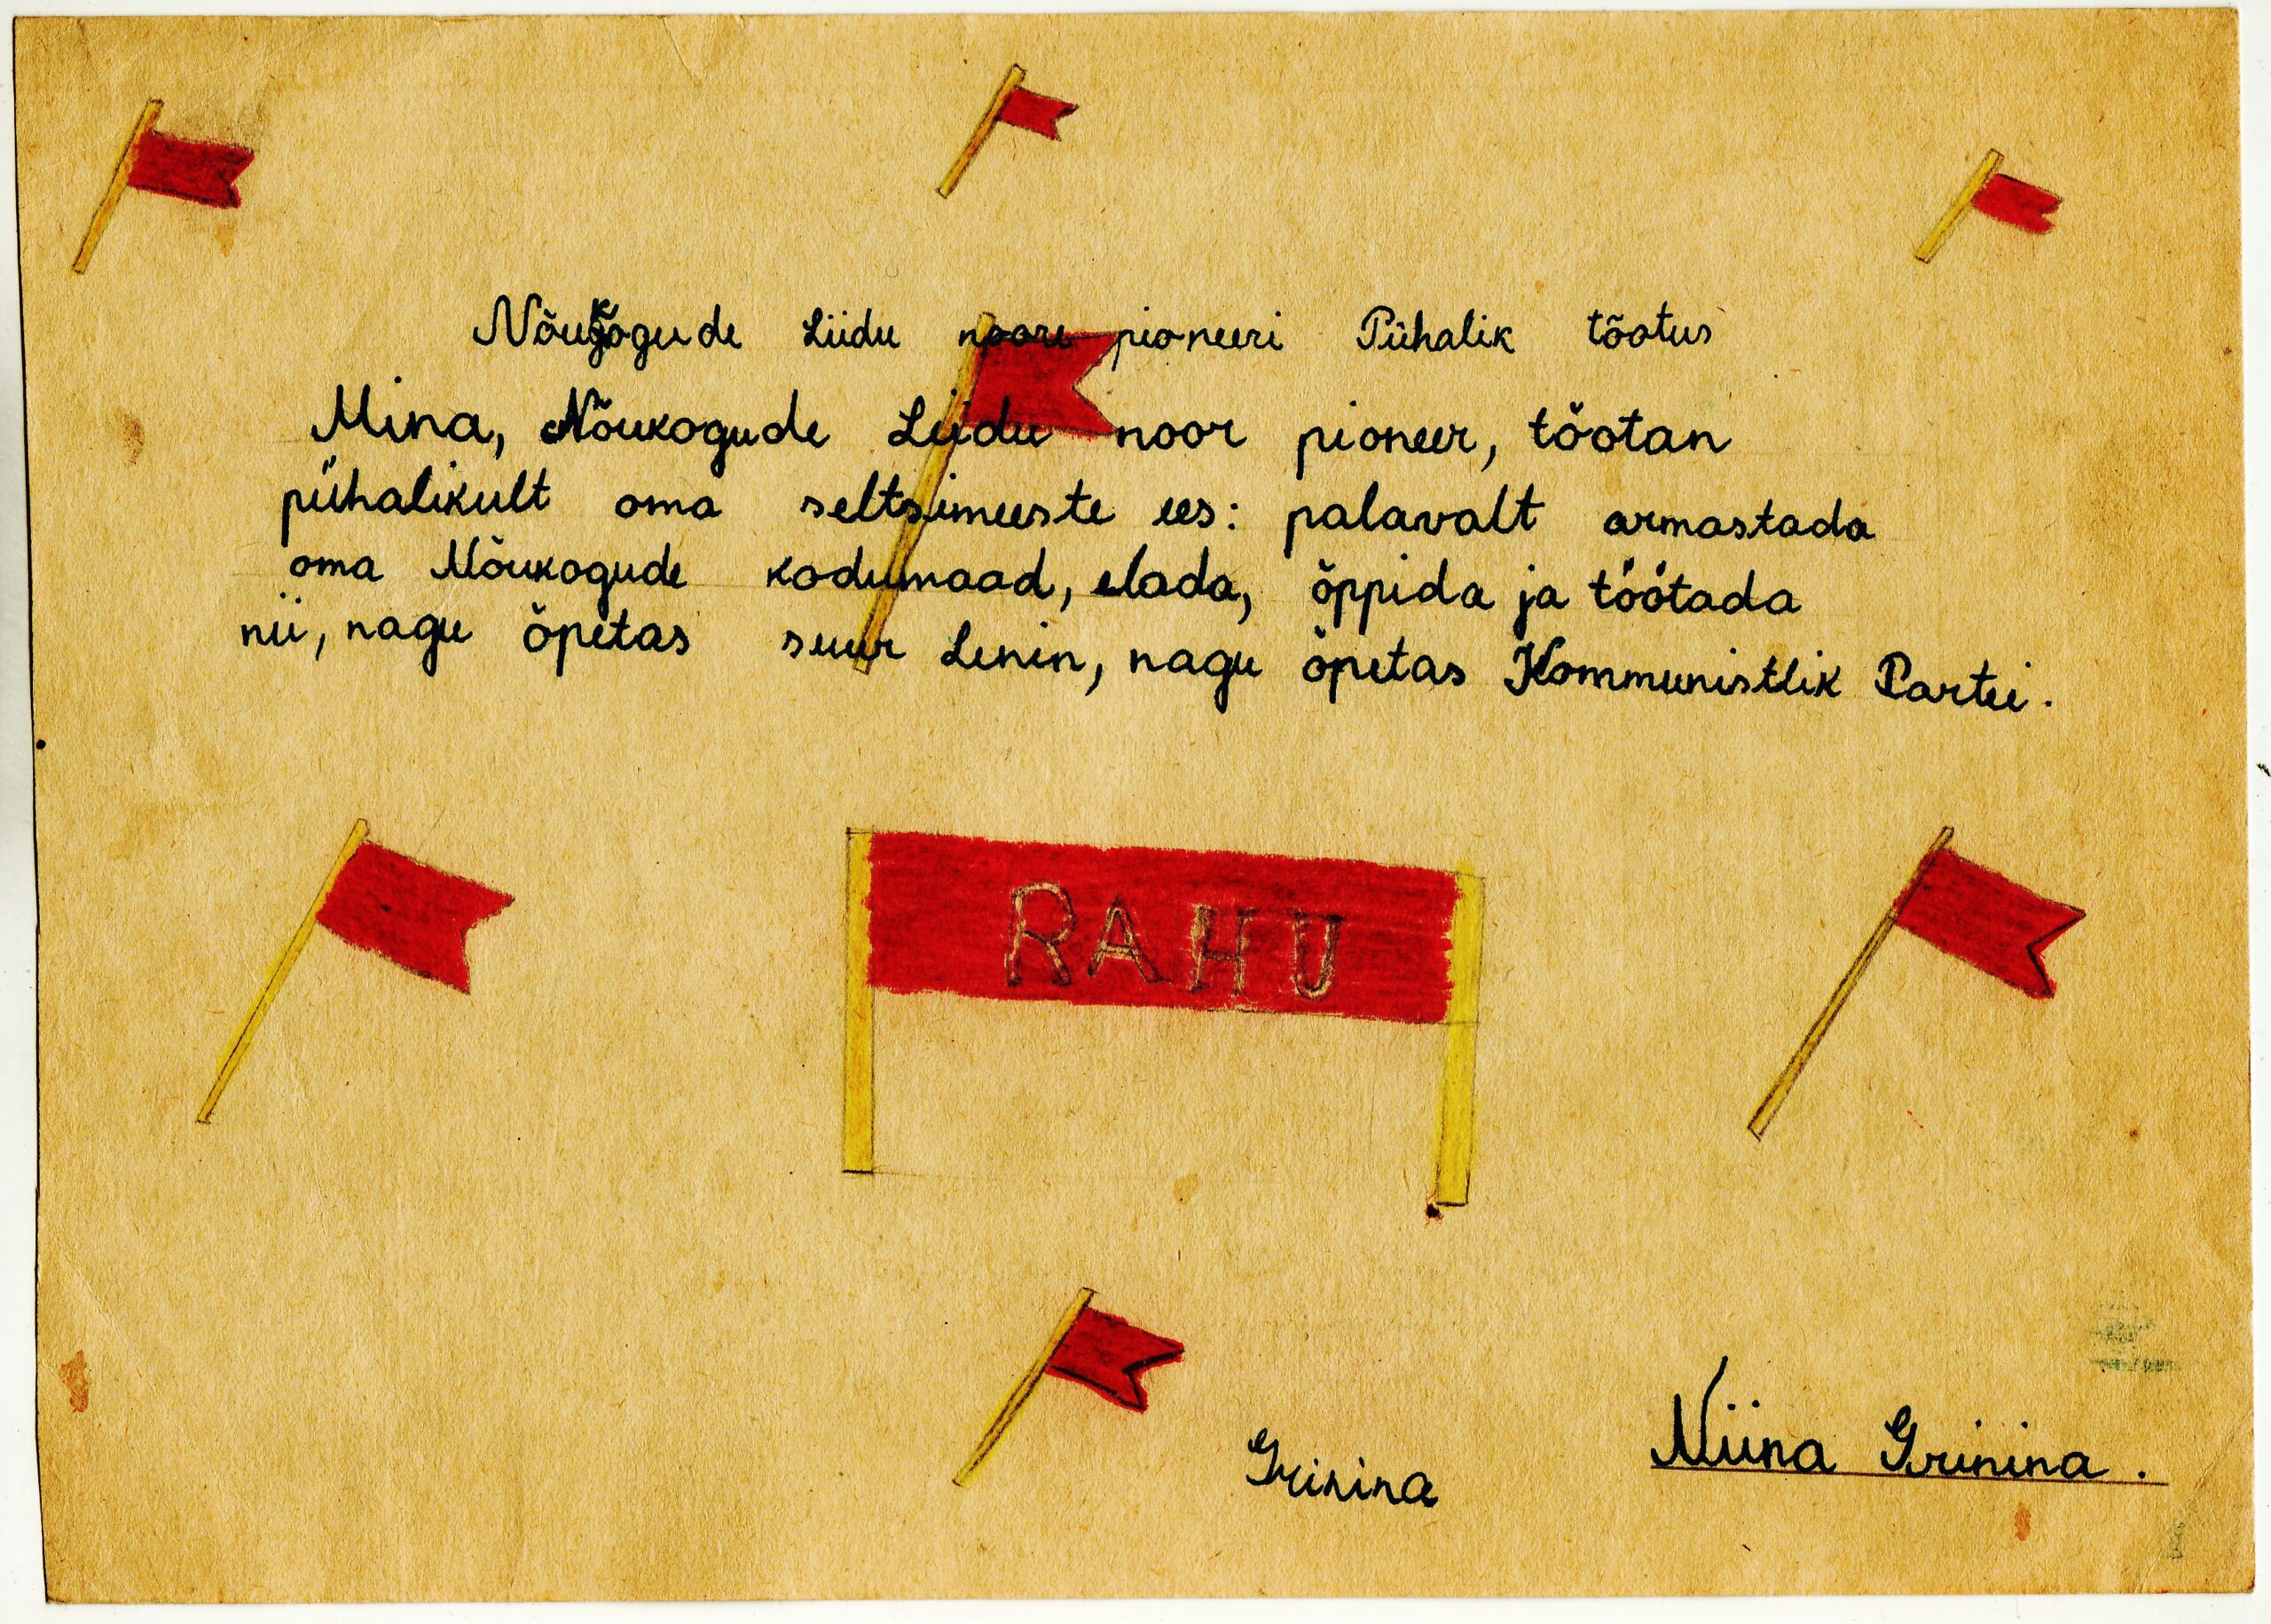 Nõukogude Liidu noore pioneeri Pühalik tõotus
Mina, Nõukogude Liidu noor pioneer, tõotan
pühalikult oma seltsimeeste ees: palavalt armastada
oma Nõukogude kodumaad, elada, õppida ja töötada
nii, nagu õpetas suur Lenin, nagu õpetas Kommunistlik Partei.
RAHU
Grinina
Niina Grinina.